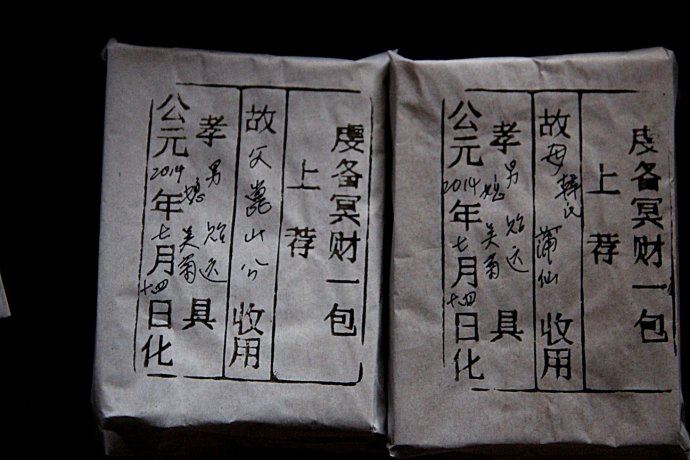 虔备冥财一包
上荐
故父山公收用
孝男贻远具
媳菊
公元2014年七月十四日化
虔备冥财一包
上荐
故母韩氏蒲仙收用
孝男贻远具
媳菊
公元2014年七月十四日化